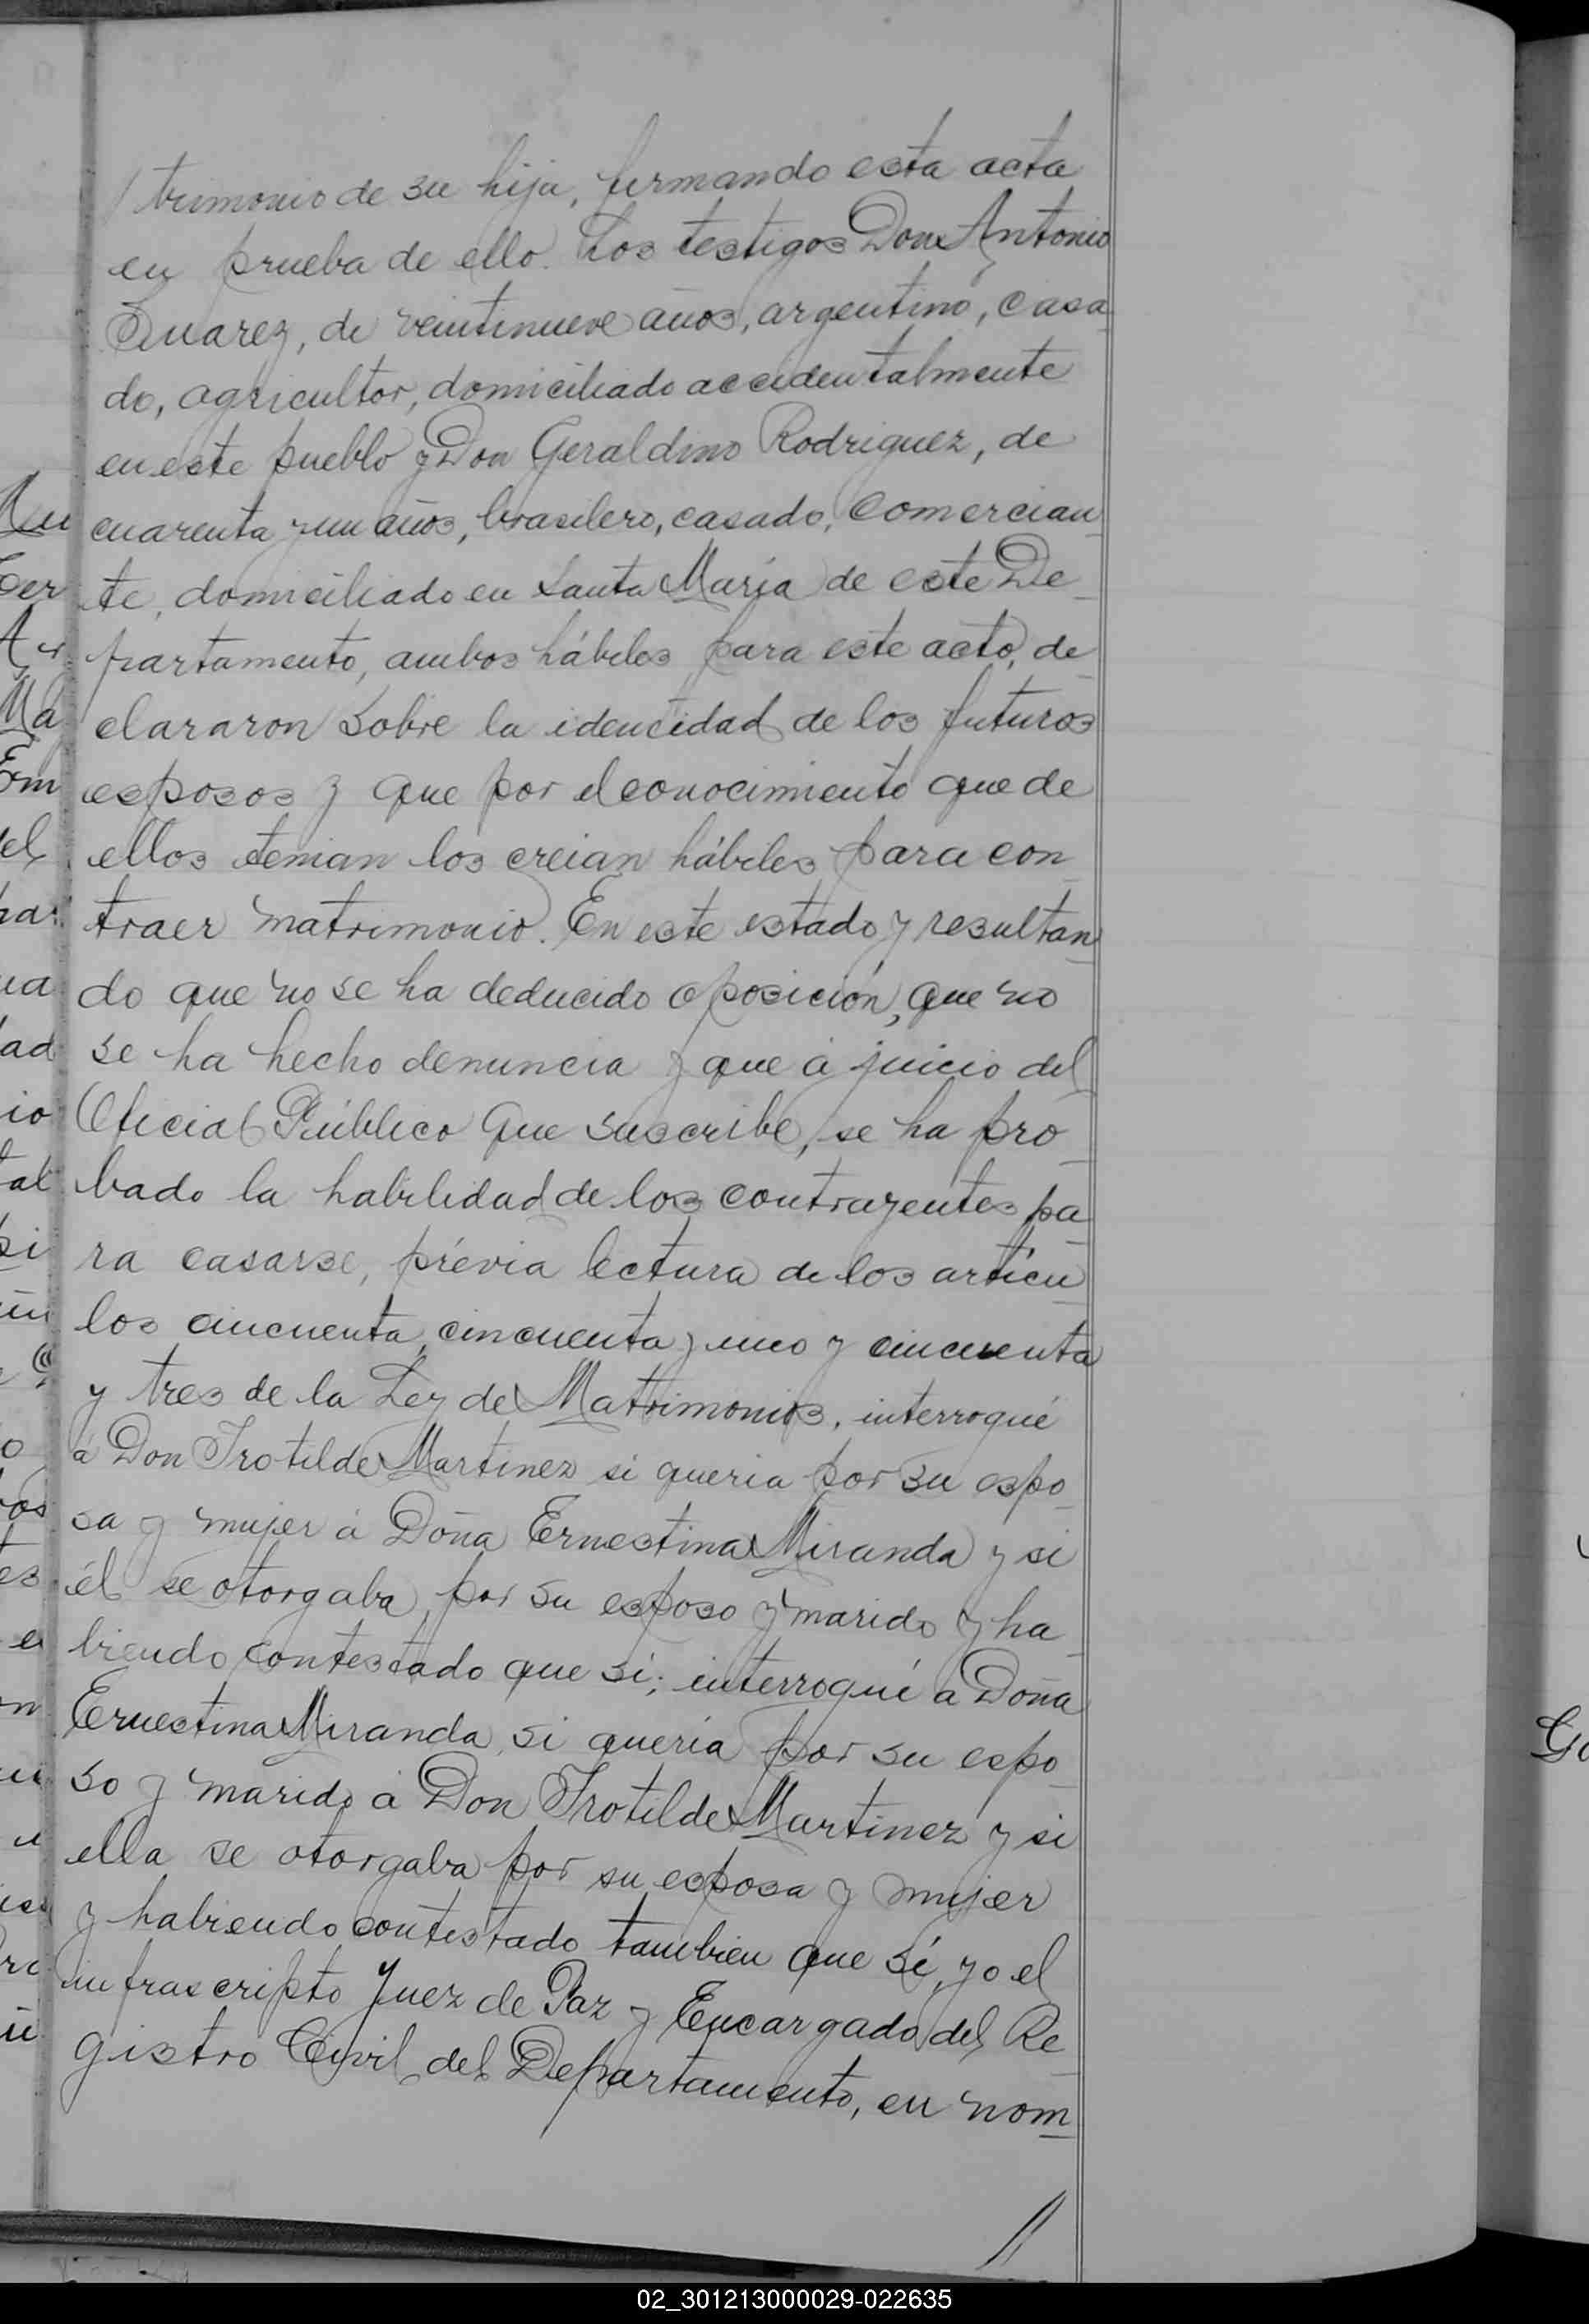 trimonio de su hija, firmando esta acta
en prueba de ello. Los testigos Don Antonio
Suarez, de veintinueve años, argentino, casa
do, agricultor, domiciliado accidentalmente
en este pueblo y Don Geraldino Rodriguez, de
cuarenta y un años, brasilero, casado, comercian_
te, domiciliado en Santa María de este De_
partamento, ambos hábiles para este acto, de_
clararon sobre la identidad de los futuros
esposos y que por el conocimiento que de
ellos tenian los creian hábiles para con_
traer matrimonio. En este estado y resultan_
do que no se ha deducido oposición, que no
se ha hecho denuncia y que á juicio del
Oficial Público que suscribe, se ha pro_
bado la habilidad de los contrayentes pa_
ra casarse, prévia lectura de los artícu_
los cincuenta, cincuenta y uno y cincuenta
y tres de la Ley de Matrimonios, interroqué
á Don Trotilde Martinez si queria por su espo_
sa y mujer á Doña Ernestina Miranda y si
él se otorgaba por su esposo y marido y ha_
biendo contestado que sí; interroqué á Doña
Ernestina Miranda, si quería por su espo_
so y marido á Don Trotilde Martinez y si
ella se otorgaba por su esposa y mujer
y habiendo contestado tambien que sí, yo el
infrascripto Juez de Paz y Encargado del Re_
gistro Civil del Departamento, en nom_
02_301213000029-022635